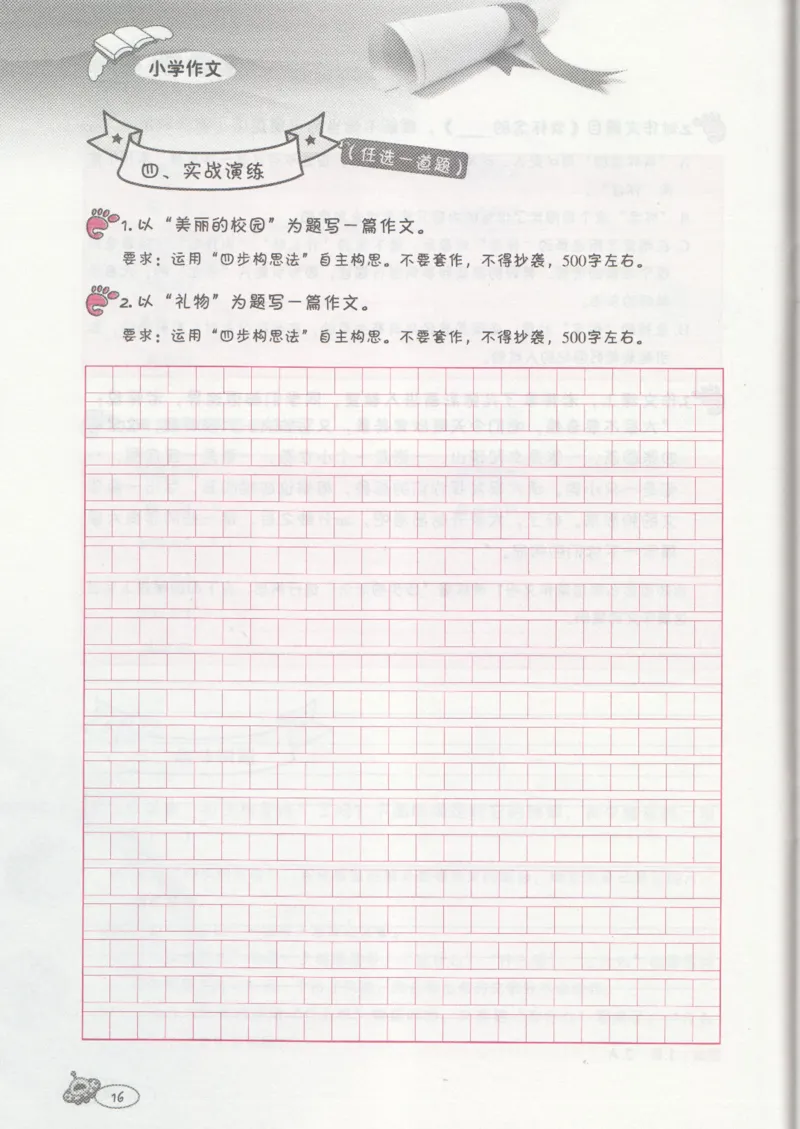 小学作文
四、实战演练
（任选一道题）
1. 以“美丽的校园”为题写一篇作文。
要求：运用“四步构思法”自主构思。不要套作，不得抄袭，500字左右。
2. 以“礼物”为题写一篇作文。
要求：运用“四步构思法”自主构思。不要套作，不得抄袭，500字左右。
16